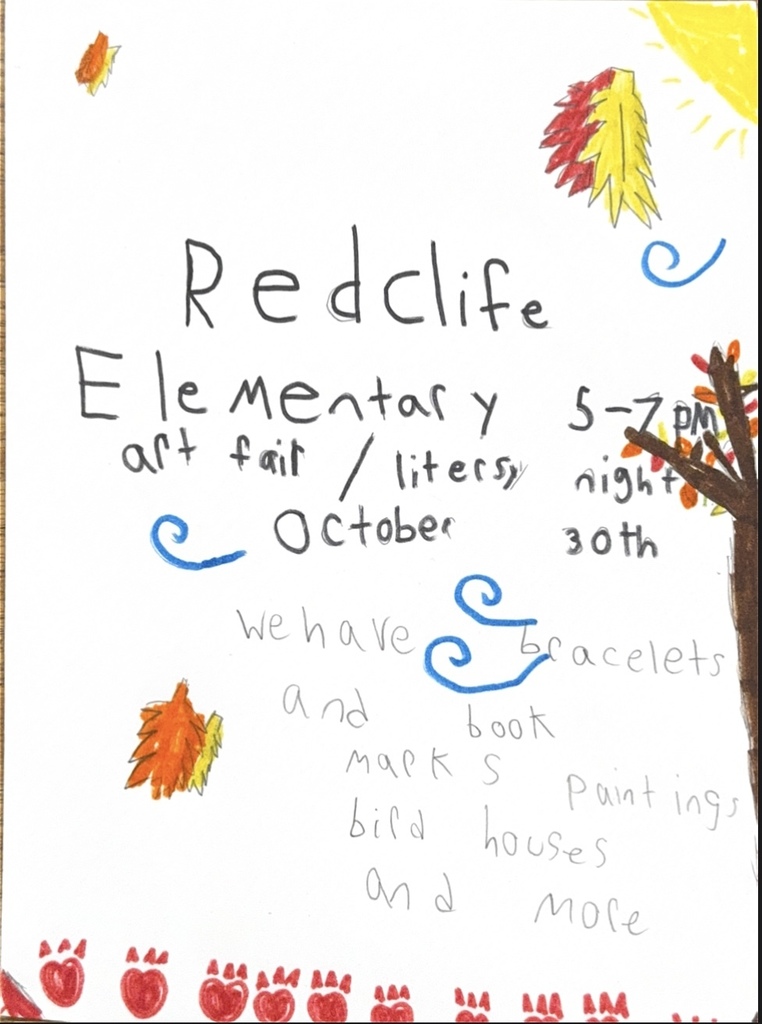 Redclife
Elementary 5-7pm
art fair / litersy night
October 30th
we have bracelets
and book
marks paintings
bird houses
and more